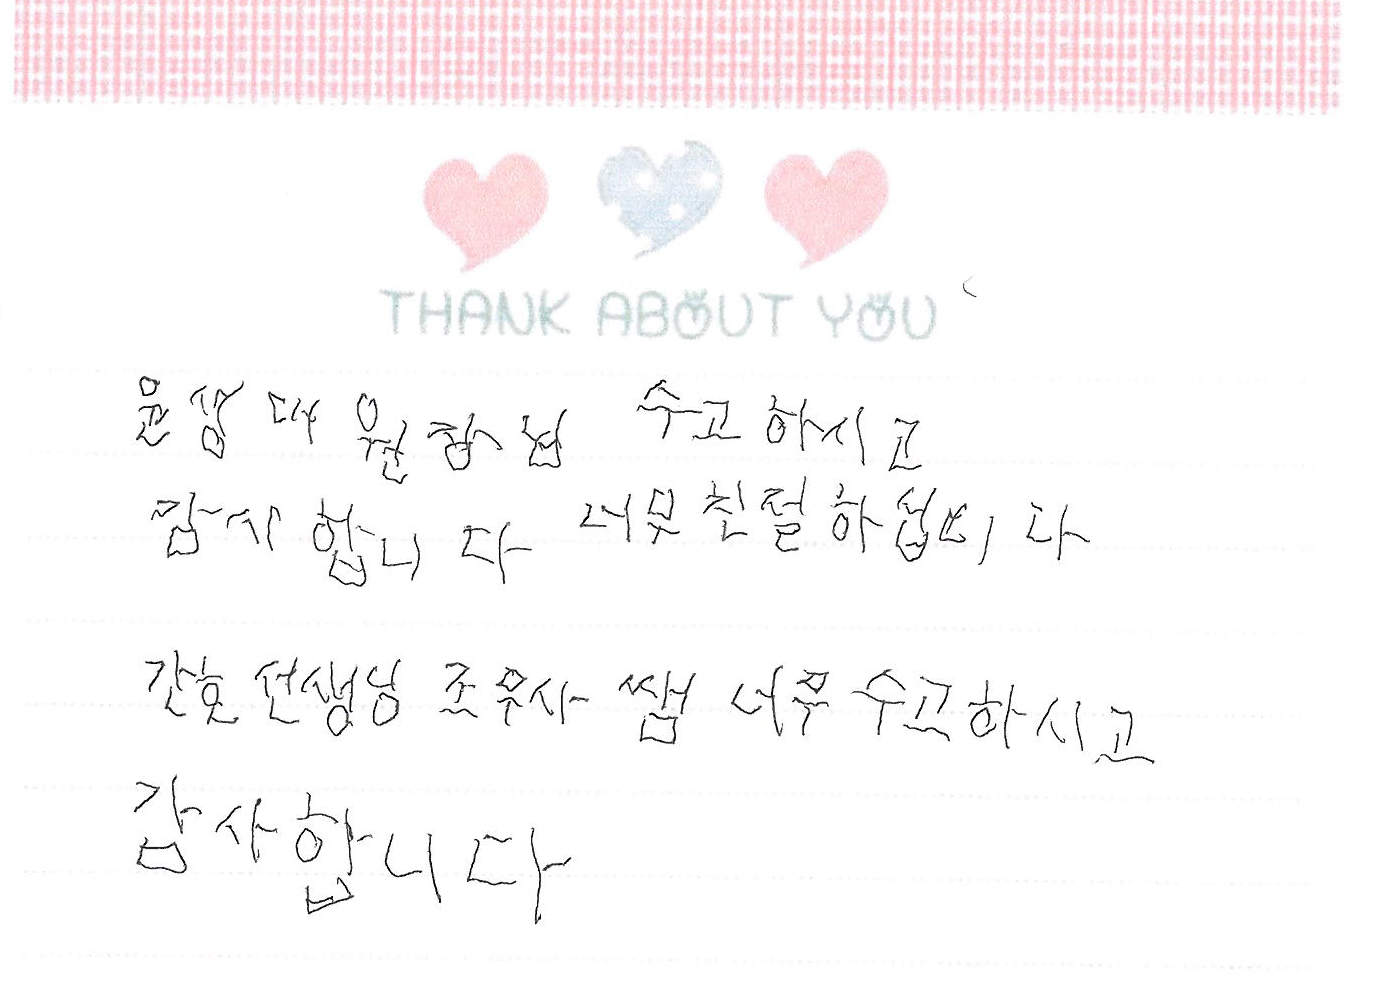 THANK ABOUT YOU
윤상대 원장님 수고하시고
감사합니다 너무 친절하섭니다
간호선생님 조무사 쌤 너무 수고하시고
감사합니다